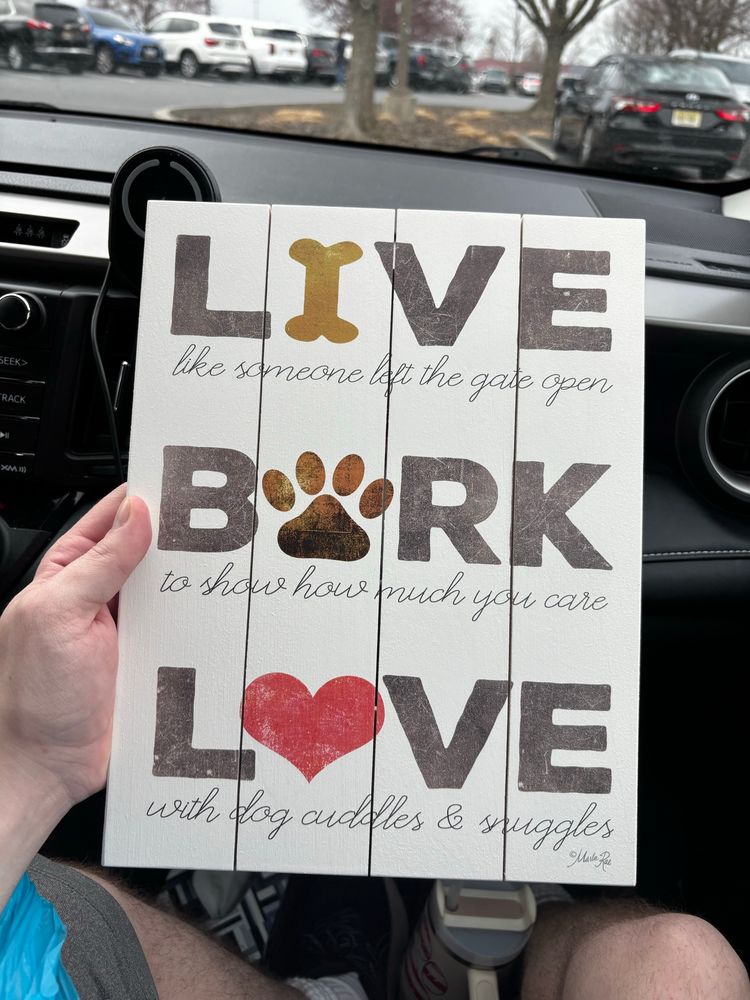 LIVE
like someone left the gate open
BARK
to show how much you care
LOVE
with dog cuddles & snuggles
©Marla Rae
SEEK>
TRACK